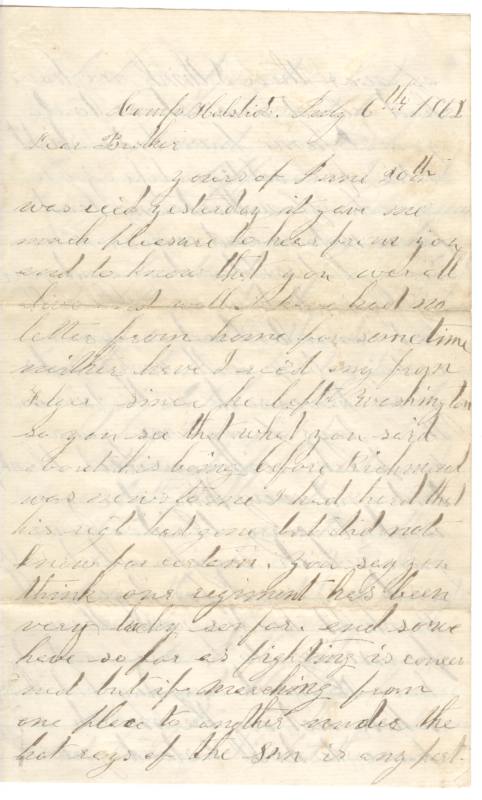 Camp July 6th 186
Dear Brother
yours of June 20th
was recd yesterday it gave me
much pleasure to hear from you
and to know that you wer all
alive and well. I have had no
letter from home for sometime
neither have I recd any from
since he left Washington
so you see that what you said
about his being before Richmond
was news to me I had herd that
his regt had gone but did not
know for certain. you say you
think our regiment has been
very lucky so far. and so we
have so far as fighting is concer
ned but if marching from
one place to another under the
hot rays of the sun is any part